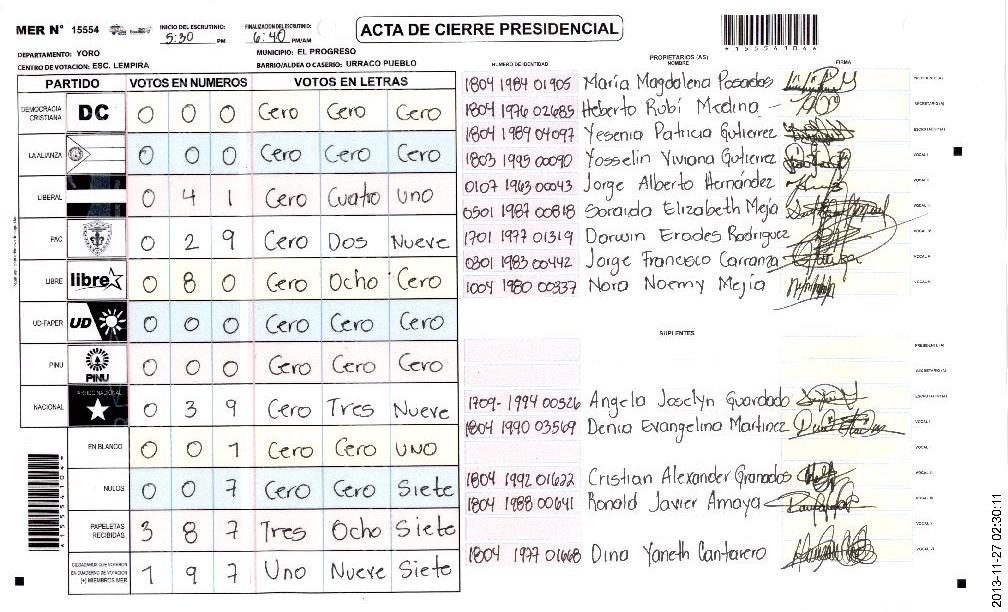 MER N° 15554
INICIO DEL ESCRUTINIO: 5:30 PM
FINALIZACION DEL ESCRUTINIO: 6:40 PM/AM
ACTA DE CIERRE PRESIDENCIAL
*155541044
DEPARTAMENTO: YORO
MUNICIPIO: EL PROGRESO
CENTRO DE VOTACION: ESC. LEMPIRA
BARRIO/ALDEA O CASERIO: URRACO PUEBLO
PARTIDO VOTOS EN NUMEROS VOTOS EN LETRAS
DEMOCRACIA CRISTIANA DC 0 0 0 Cero Cero Cero
LA ALIANZA 0 0 0 Cero Cero Cero
LIBERAL 0 4 1 Cero Cuatro uno
PAC 0 2 9 Cero Dos Nueve
LIBRE libre 0 8 0 Cero Ocho Cero
UD-FAPER UD 0 0 0 Cero Cero Cero
PINU PINU 0 0 0 Cero Cero Cero
NACIONAL PARTIDO NACIONAL 0 3 9 Cero Tres Nueve
EN BLANCO 0 0 1 Cero Cero UNO
NULOS 0 0 7 Cero Cero Siete
PAPELETAS RECIBIDAS 3 8 7 Tres Ocho Siete
CIUDADANOS QUE VOTARON EN CUADERNO DE VOTACION (+) MIEMBROS MER 1 9 7 Uno Nueve Siete
PROPIETARIOS (AS)
NUMERO DE IDENTIDAD NOMBRE FIRMA
1804 1984 01905 María Magdalena Posadas PRESIDENTE (A)
1804 1976 02685 Heberto Rubí Medina SECRETARIO (A)
1804 1989 04097 Yesenia Patricia Gutierrez ESCRUTADOR (A)
1803 1995 00090 Yosselin Viviana Gutierrez VOCAL I
0107 1963 00043 Jorge Alberto Hernández VOCAL II
0501 1987 00818 Soraida Elizabeth Mejía VOCAL III
1701 1977 01319 Darwin Erodes Rodriguez VOCAL IV
0301 1983 00442 Jorge Francisco Carranza VOCAL V
1004 1980 00337 Nora Noemy Mejía VOCAL VI
SUPLENTES
PRESIDENTE (A)
SECRETARIO (A)
1709-1994 00526 Angela Joselyn Guardado ESCRUTADOR (A)
1804 1990 03569 Denia Evangelina Martinez VOCAL I
VOCAL II
1804 1992 01622 Cristian Alexander Granados VOCAL III
1804 1988 00641 Ronald Javier Amaya VOCAL IV
VOCAL V
1804 1977 01668 Dina Yaneth Cantarero VOCAL VI
2013-11-27 02:30:11